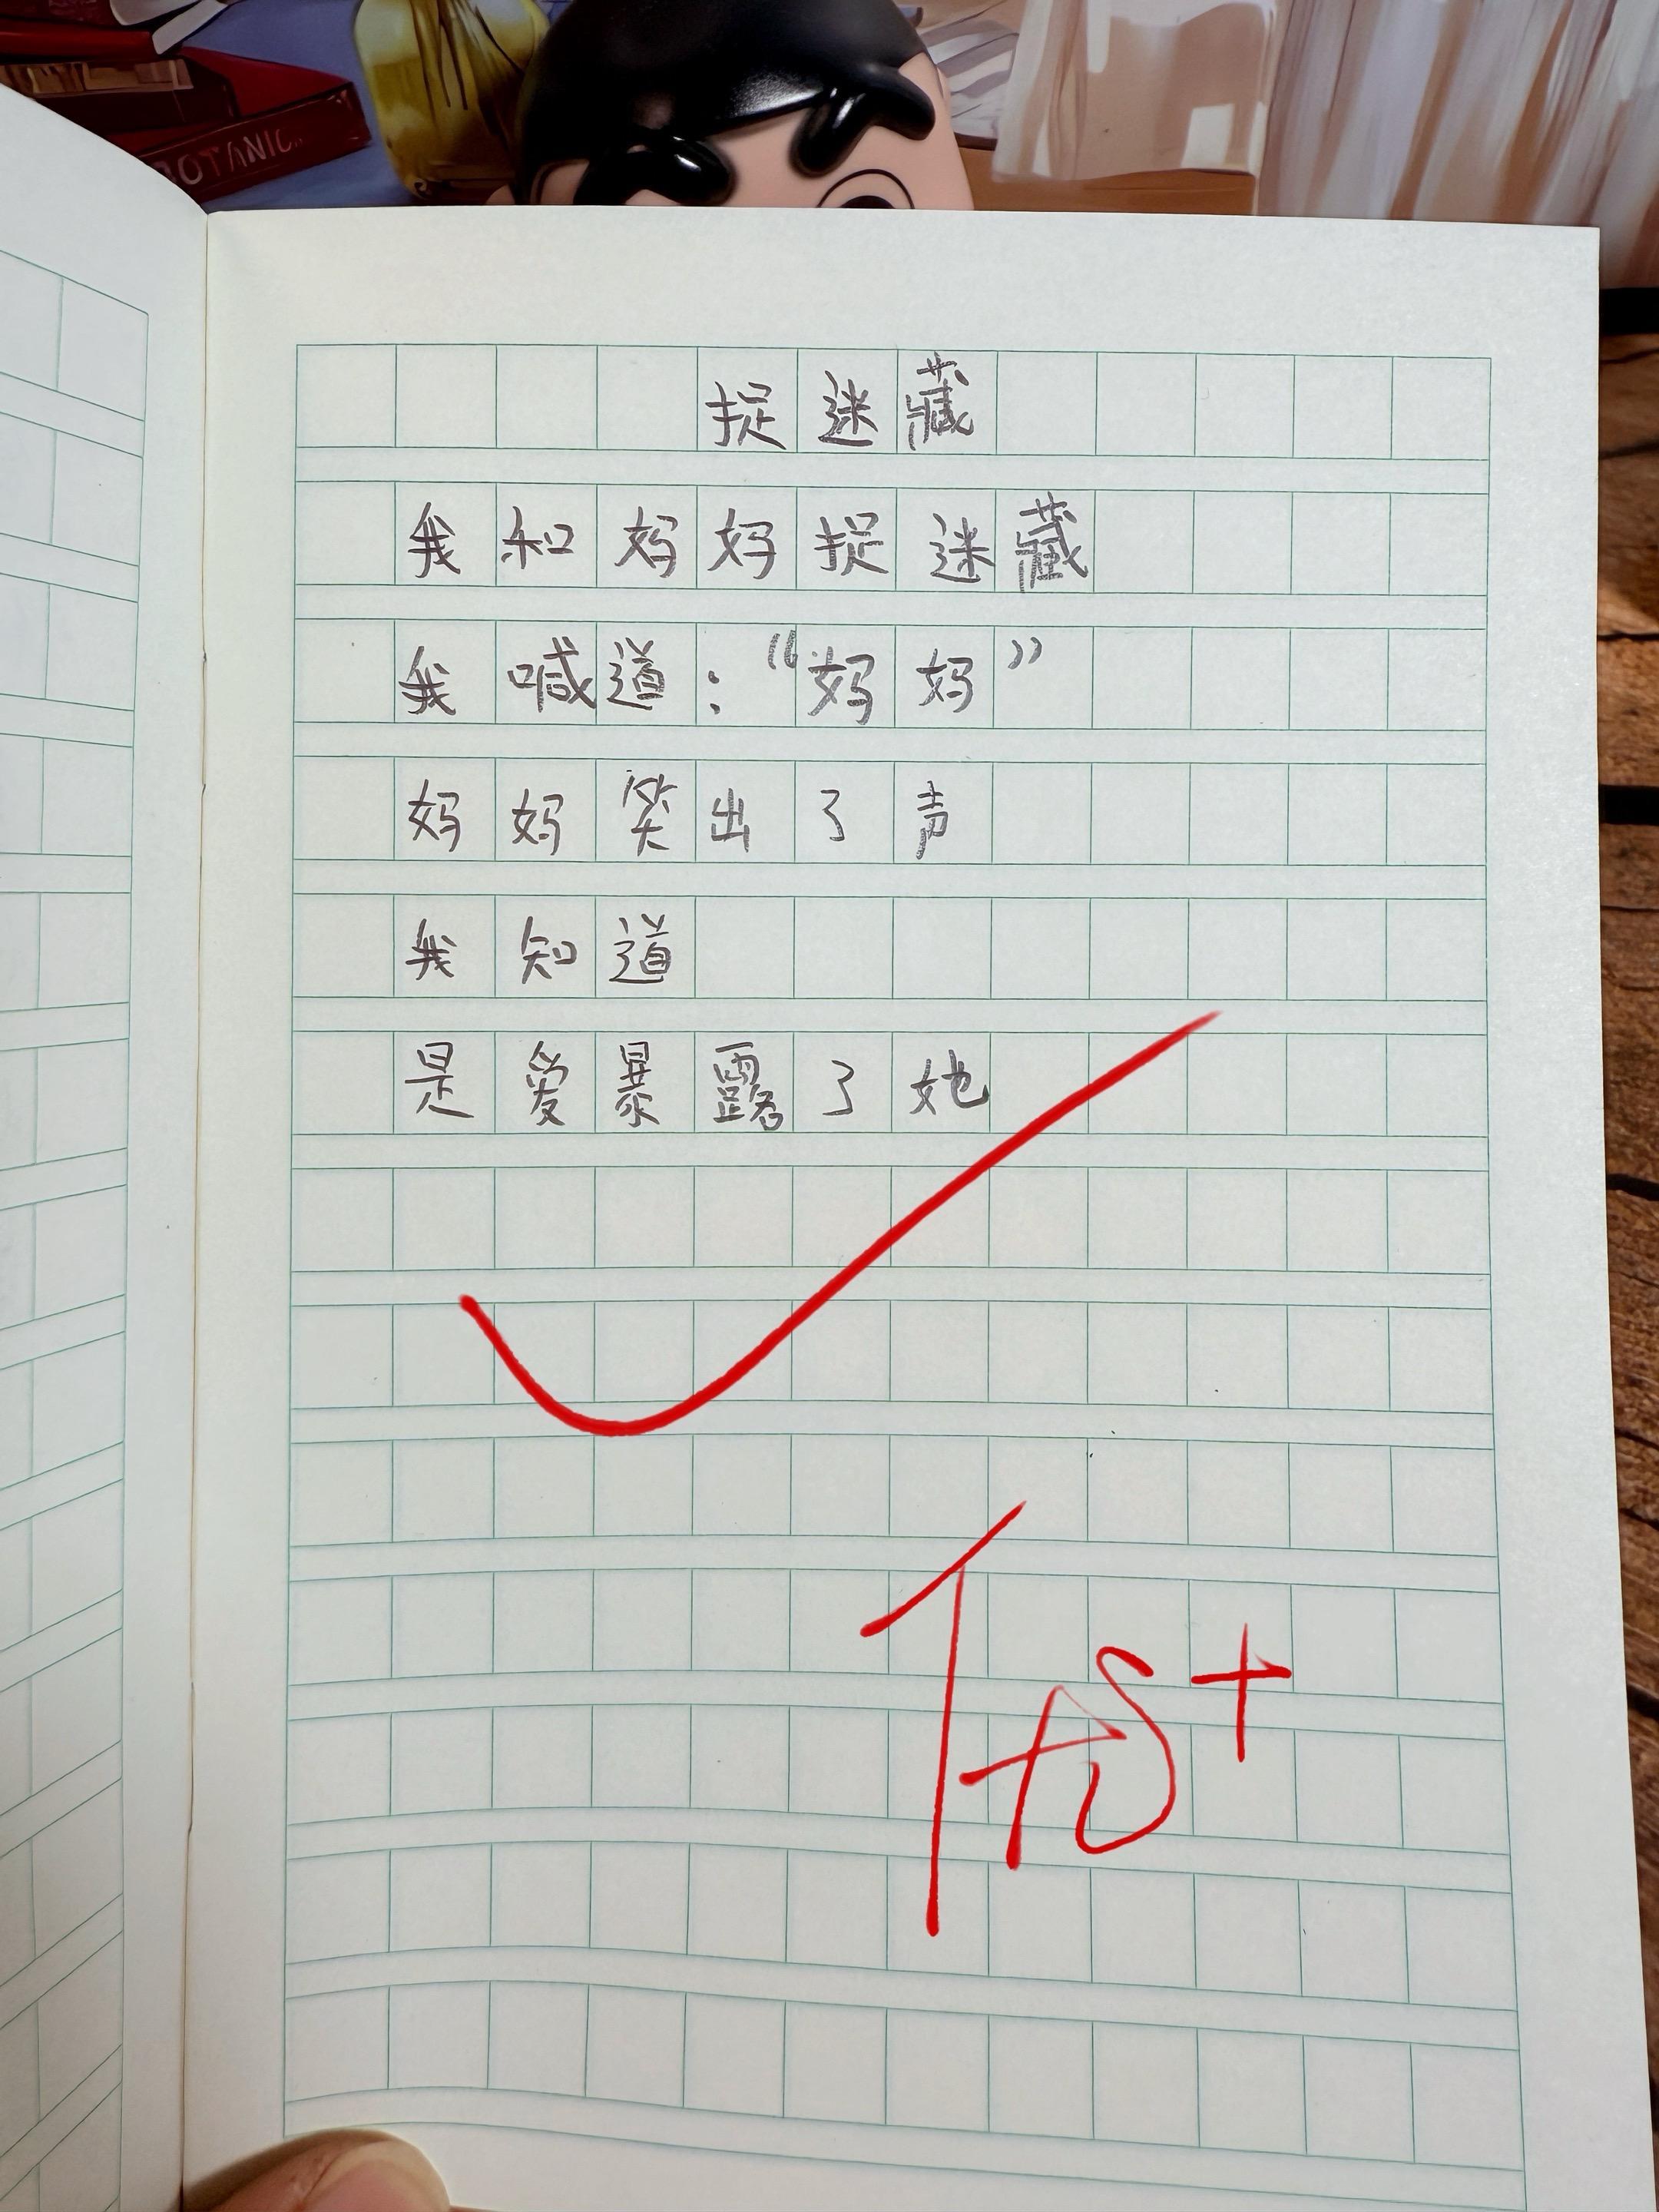 BOTANIC..
捉迷藏
我和妈妈捉迷藏
我喊道：“妈妈”
妈妈笑出了声
我知道
是爱暴露了她